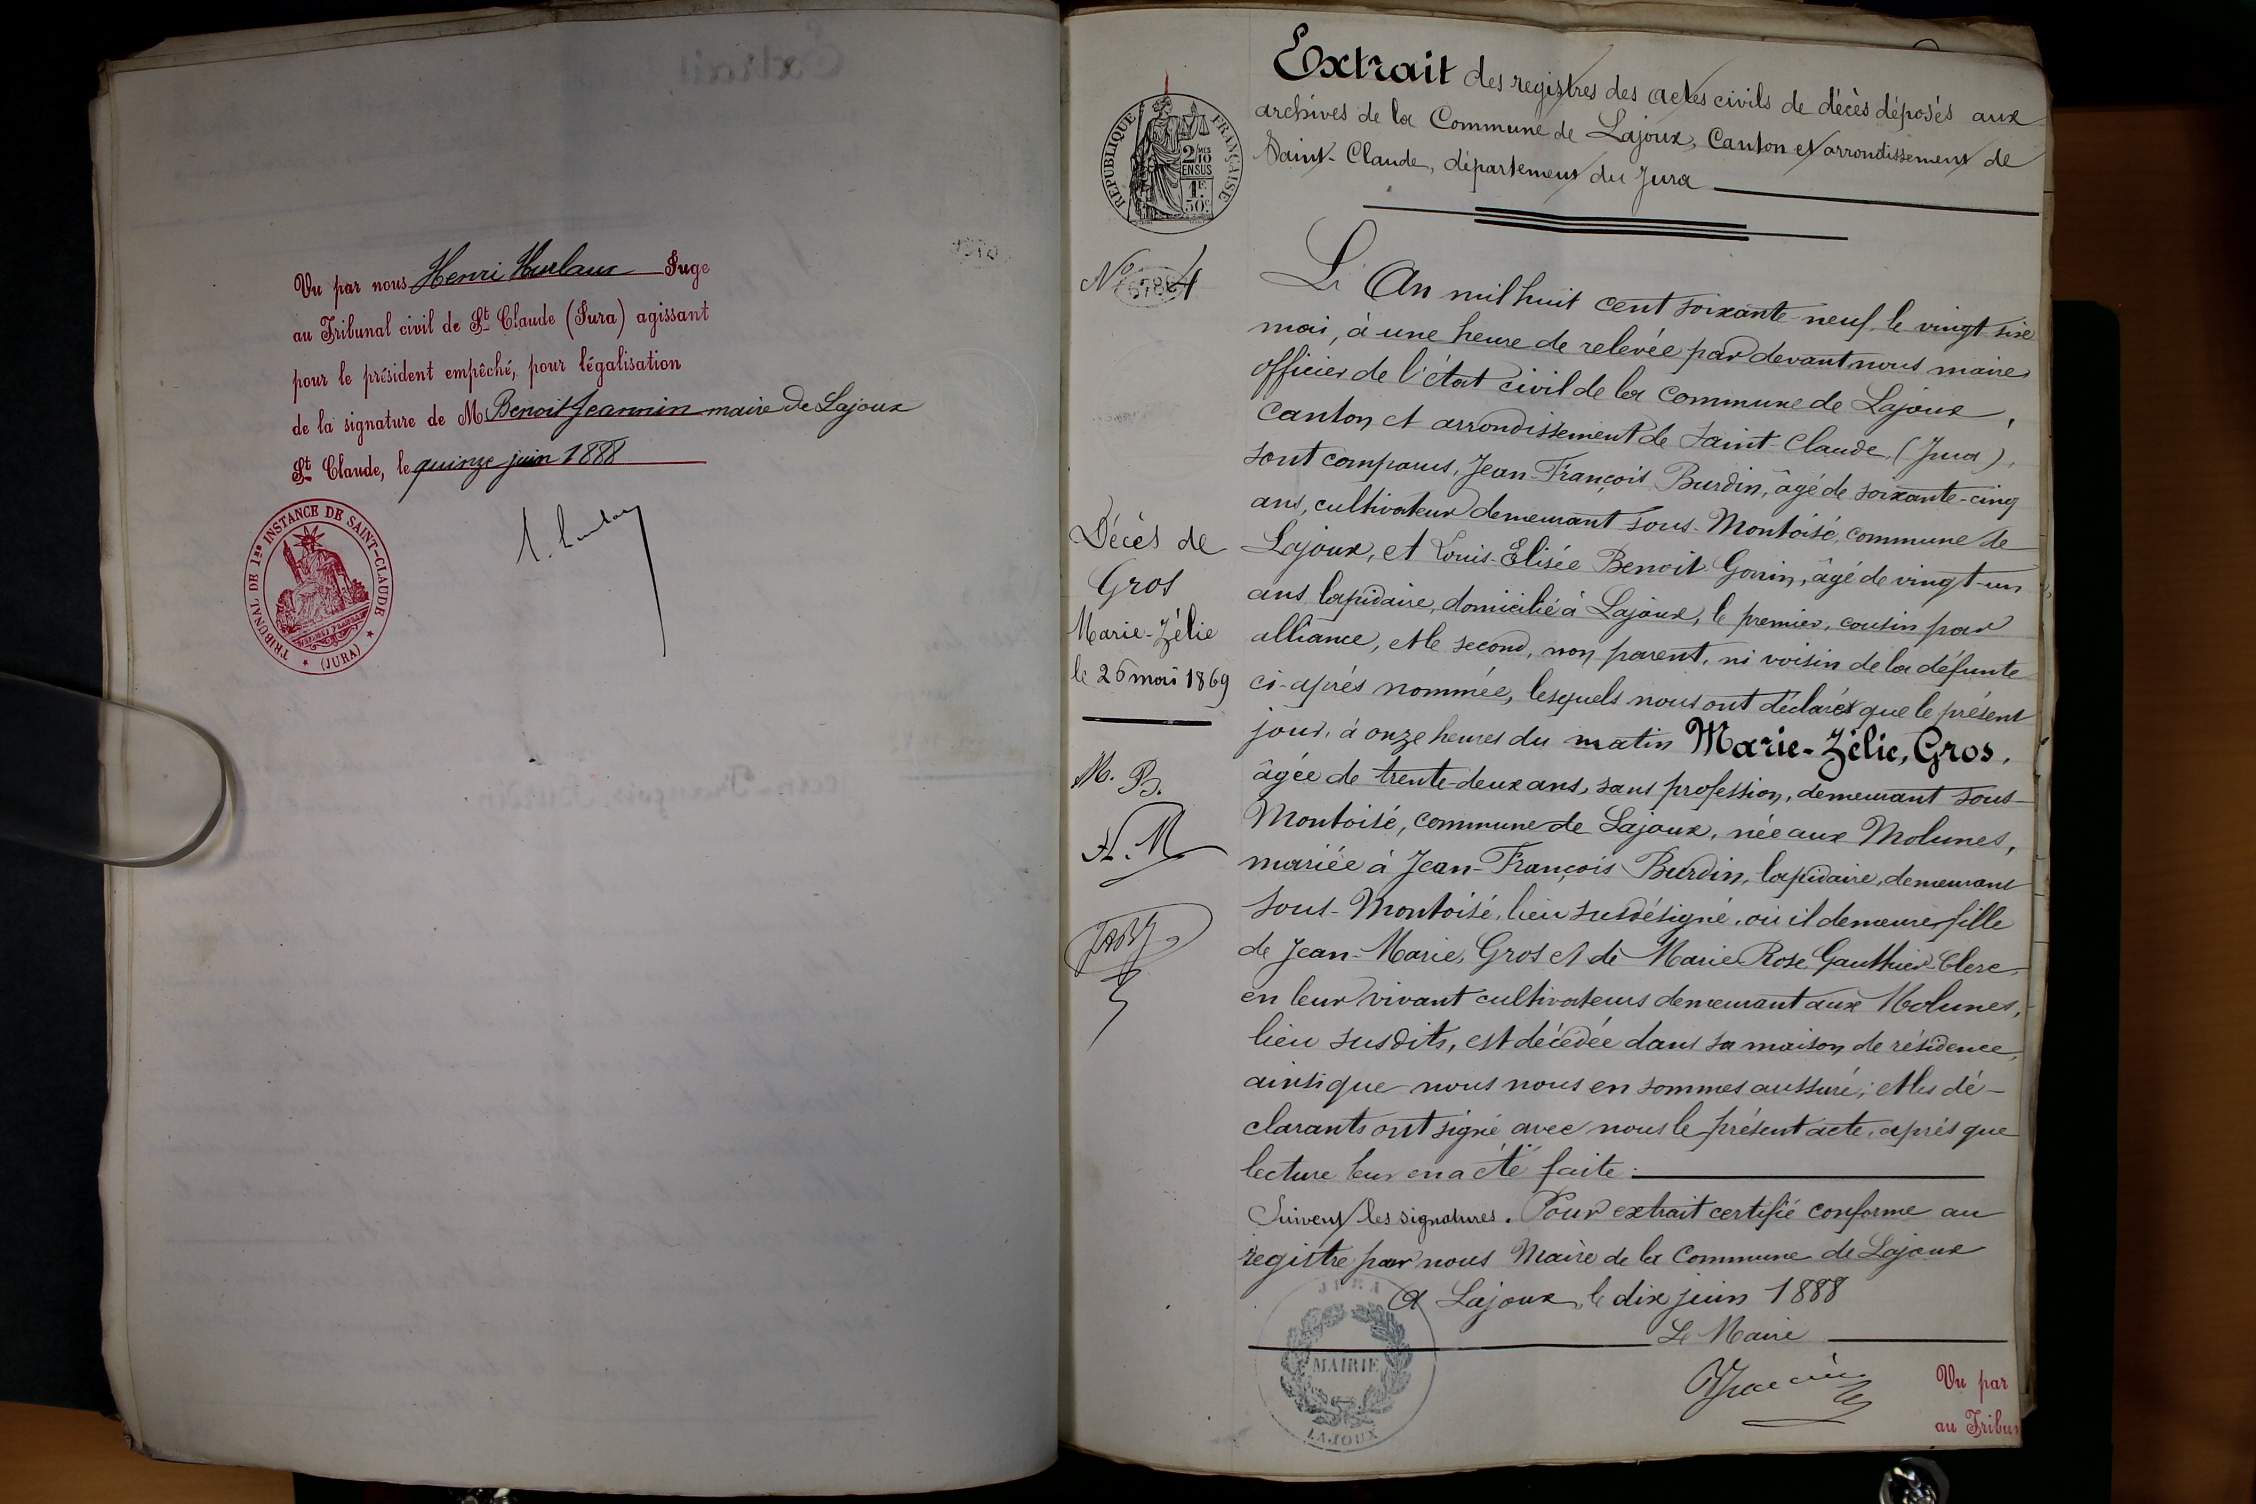 Vu par nous Henri Hurlaux Juge
au Tribunal civil de St Claude (Jura) agissant
pour le président empêché, pour légalisation
de la signature de M Benoit Jeannin maire de Lajoux
St Claude, le quinze juin 1888
TRIBUNAL DE 1RE INSTANCE DE SAINT-CLAUDE
★ (JURA) ★
Extrait des registres des actes civils de décès déposés aux
archives de la Commune de Lajoux, Canton et arrondissement de
Saint-Claude, département du Jura
REPUBLIQUE FRANÇAISE
2/10 MES
EN SUS
1F.
50C.
No 4
Décès de
Gros
Marie-Zélie
le 26 mai 1869
M. B.
A. M
L'An mil huit cent soixante-neuf le vingt-six
mai, à une heure de relevée par devant nous maire
officier de l'état civil de la commune de Lajoux,
canton et arrondissement de Saint-Claude, (Jura),
sont comparus, Jean-François Burdin, âgé de soixante-cinq
ans, cultivateur demeurant sous-Montoisé, commune de
Lajoux, et Louis-Elisée Benoit-Gonin, âgé de vingt-un
ans, lapidaire, domicilié à Lajoux, le premier, cousin par
alliance, et le second, non parent, ni voisin de la défunte
ci-après nommée, lesquels nous ont déclarés que le présent
jour, à onze heures du matin Marie-Zélie, Gros,
âgée de trente-deux ans, sans profession, demeurant sous-
Montoisé, commune de Lajoux, née aux Molunes,
mariée à Jean-François Burdin, lapidaire, demeurant
sous-Montoisé, lieu susdésigné, où il demeure, fille
de Jean-Marie, Gros et de Marie Rose Gauthier-Clerc,
en leur vivant cultivateurs demeurant aux Molunes,
lieu susdits, est décédée dans sa maison de résidence,
ainsi que nous nous en sommes aussuré; et les dé-
clarants ont signé avec nous le présent acte, après que
lecture leur en a été faite.
Suivent les signatures. Pour extrait certifié conforme au
registre par nous Maire de la Commune de Lajoux
A Lajoux, le dix juin 1888
Le Maire
JURA
MAIRIE
LAJOUX
Vu par
au Tribun